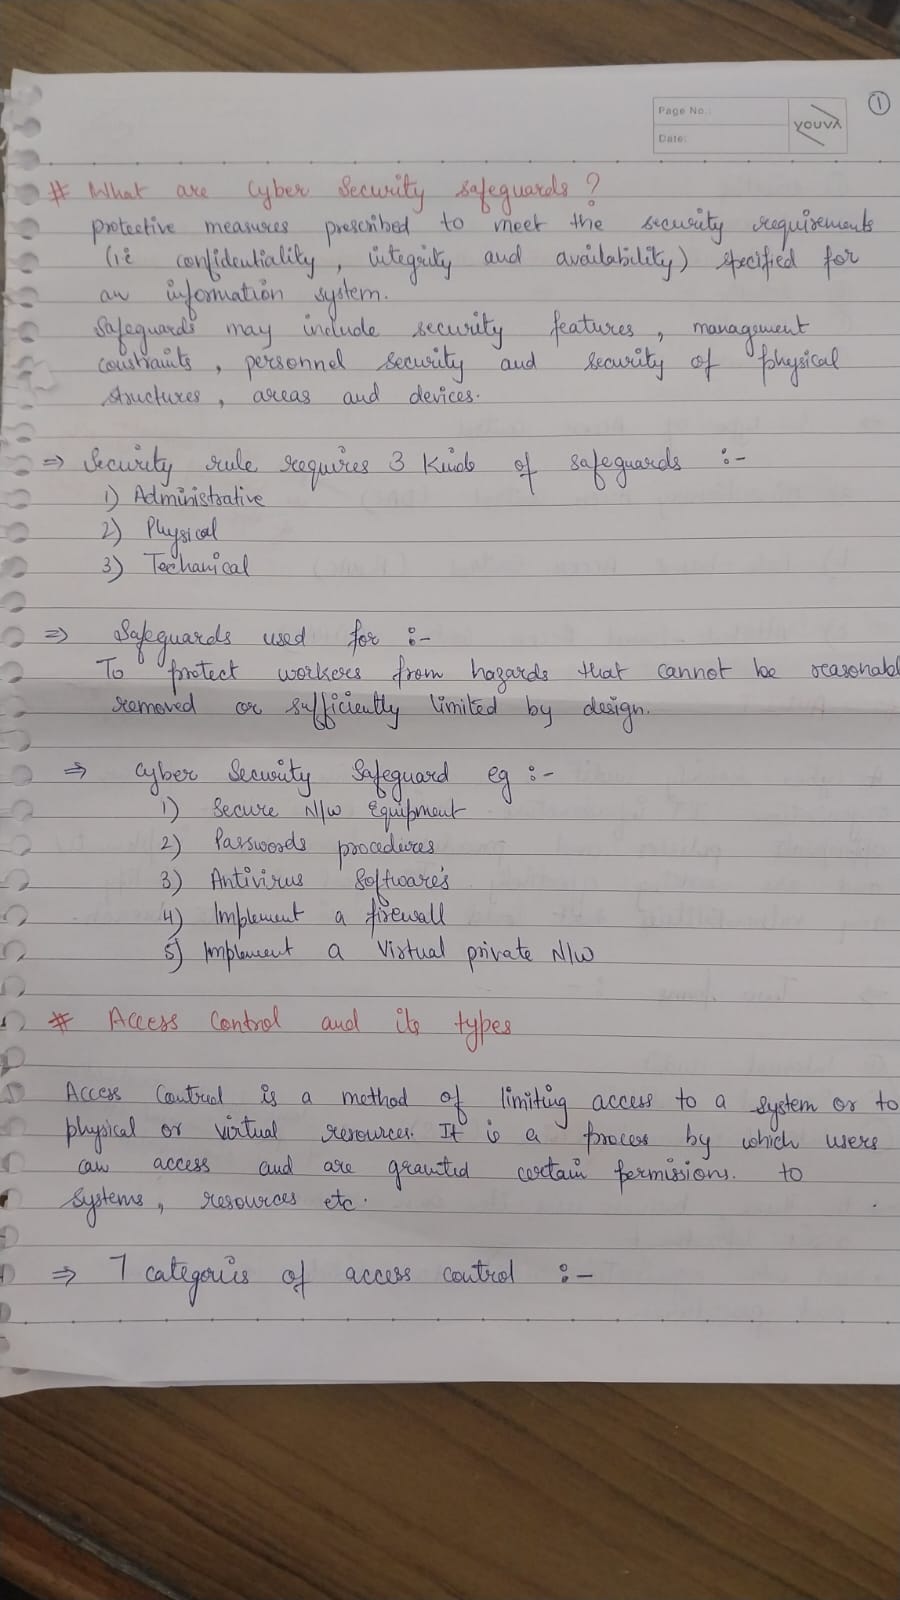 Page No.:
Date:
YOUVA
1
# What are Cyber Security safeguards?
protective measures prescribed to meet the security requirements
(i.e confidentiality, integrity and availability) specified for
an information system.
Safeguards may include security features, management
constraints, personnel security and security of physical
structures, areas and devices.
⇒ Security rule requires 3 Kinds of safeguards :-
1) Administrative
2) Physical
3) Techanical
⇒ Safeguards used for :-
To protect workers from hazards that cannot be reasonabl
removed or sufficiently limited by design.
⇒ Cyber Security Safeguard eg :-
1) Secure N/w Equipment
2) Passwords procedures
3) Antivirus Software's
4) Implement a firewall
5) Implement a Virtual private N/W
# Access Control and its types
Access Control is a method of limiting access to a system or to
physical or virtual resources. It is a process by which users
can access and are granted certain permissions. to
systems, resources etc.
⇒ 7 categories of access control :-